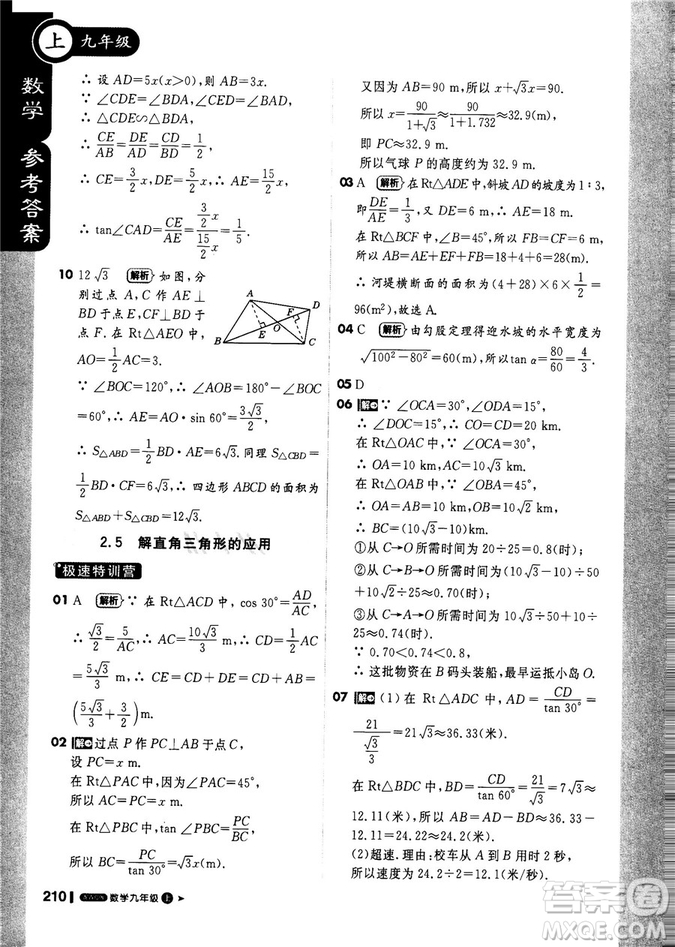 上 九年级
数学 参考答案
∴ 设 AD=5x(x>0),则 AB=3x.
∵ ∠CDE=∠BDA,∠CED=∠BAD,
∴ △CDE∽△BDA,
∴ CE/AB=DE/AD=CD/BD=1/2,
∴ CE=3/2x,DE=5/2x,∴ AE=15/2x,
∴ tan∠CAD=CE/AE=(3/2)/(15/2)=1/5.
10 12√3 解析 如图,分
别过点 A,C 作 AE⊥
BD于点 E,CF⊥BD于
点 F.在 Rt△AEO 中,
AO=1/2AC=3.
A
D
F
O
E
B
C
∵ ∠BOC=120°,∴ ∠AOB=180°−∠BOC
=60°,∴ AE=AO·sin 60°=3√3/2,
∴ S△ABD=1/2BD·AE=6√3.同理 S△CBD=
1/2BD·CF=6√3,∴ 四边形 ABCD 的面积为
S△ABD+S△CBD=12√3.
2.5 解直角三角形的应用
极速特训营
01 A 解析 ∵ 在 Rt△ACD 中,cos 30°=AD/AC,
∴ √3/2=5/AC,∴ AC=10√3/3 m,∴ CD=1/2AC=
5√3/3 m,∴ CE=CD+DE=CD+AB=
(5√3/3+3/2) m.
02 解 过点 P 作 PC⊥AB 于点 C,
设 PC=x m.
在 Rt△PAC 中,因为∠PAC=45°,
所以 AC=PC=x m.
在 Rt△PBC 中,tan∠PBC=PC/BC,
所以 BC=PC/tan 30°=√3x(m).
又因为 AB=90 m,所以 x+√3x=90.
所以 x=90/(1+√3)≈90/(1+1.732)≈32.9(m),
即 PC≈32.9 m.
所以气球 P 的高度约为 32.9 m.
03 A 解析 在 Rt△ADE 中,斜坡 AD的坡度为 1∶3,
即DE/AE=1/3,又∵ DE=6 m,∴ AE=18 m.
在 Rt△BCF 中,∵ ∠B=45°,∴ BF=CF=6 m,
∴ AB=AE+EF+FB=18+4+6=28(m),
∴ 河堤横断面的面积为 (4+28)×6×1/2=
96(m²),故选 A.
04 C 解析 由勾股定理得迎水坡的水平宽度为
√100²−80²=60(m),所以tan α=80/60=4/3.
05 D
06 解 ∵ ∠OCA=30°,∠ODA=15°,
∴ ∠DOC=15°,∴ CO=CD=20 km.
在 Rt△OAC 中,∵ ∠OCA=30°,
∴ OA=10 km,AC=10√3 km.
在 Rt△OAB 中,∵ ∠OBA=45°,
∴ OA=AB=10 km,OB=10√2 km.
∴ BC=(10√3−10) km.
①从 C→O 所需时间为 20÷25=0.8(时);
②从 C→B→O 所需时间为 (10√3−10)÷50+
10√2÷25≈0.70(时);
③从 C→A→O 所需时间为 10√3÷50+10÷
25≈0.74(时).
∵ 0.70<0.74<0.8,
∴ 这批物资在 B 码头装船,最早运抵小岛 O.
07 解 (1) 在 Rt△ADC 中,AD=CD/tan 30°=
21/(√3/3)=21√3≈36.33(米),
在 Rt△BDC 中,BD=CD/tan 60°=21/√3=7√3≈
12.11(米),所以 AB=AD−BD≈36.33−
12.11=24.22≈24.2(米).
(2)超速.理由:校车从 A 到 B 用时 2 秒,
所以速度约为 24.2÷2=12.1(米/秒).
210 数学九年级 上
答案圈
MXQE.COM